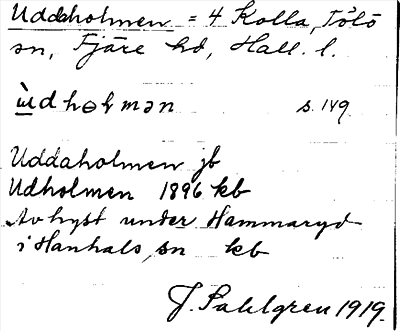 Uddaholmen = 4 Kolla, Tölö
sn, Fjäre hd, Hall. l.
ùdhɵlmən s. 149
Uddaholmen jb
Udholmen 1896 kb
Avhyst under Hammaryd
i Hanhals sn kb
J. Sahlgren 1919.